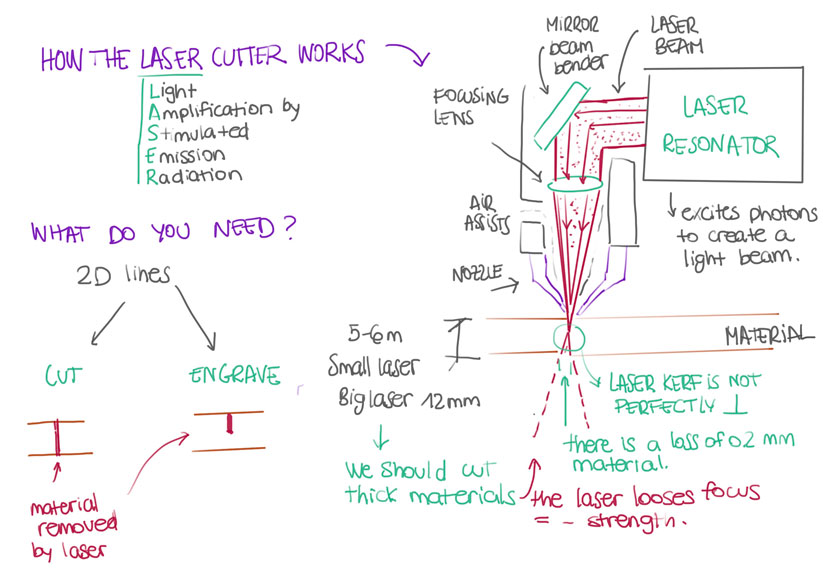 HOW THE LASER CUTTER WORKS
Light
Amplification by
Stimulated
Emission
Radiation
WHAT DO YOU NEED?
2D lines
CUT
ENGRAVE
material
removed
by laser
MIRROR
beam
bender
LASER
BEAM
FOCUSING
LENS
LASER
RESONATOR
AIR
ASSISTS
excites photons
to create a
light beam.
NOZZLE
5-6m
Small laser
Big laser 12mm
MATERIAL
LASER KERF IS NOT
PERFECTLY ⊥
there is a loss of 02 mm
material.
We should cut
thick materials
the laser looses focus
= - strength.